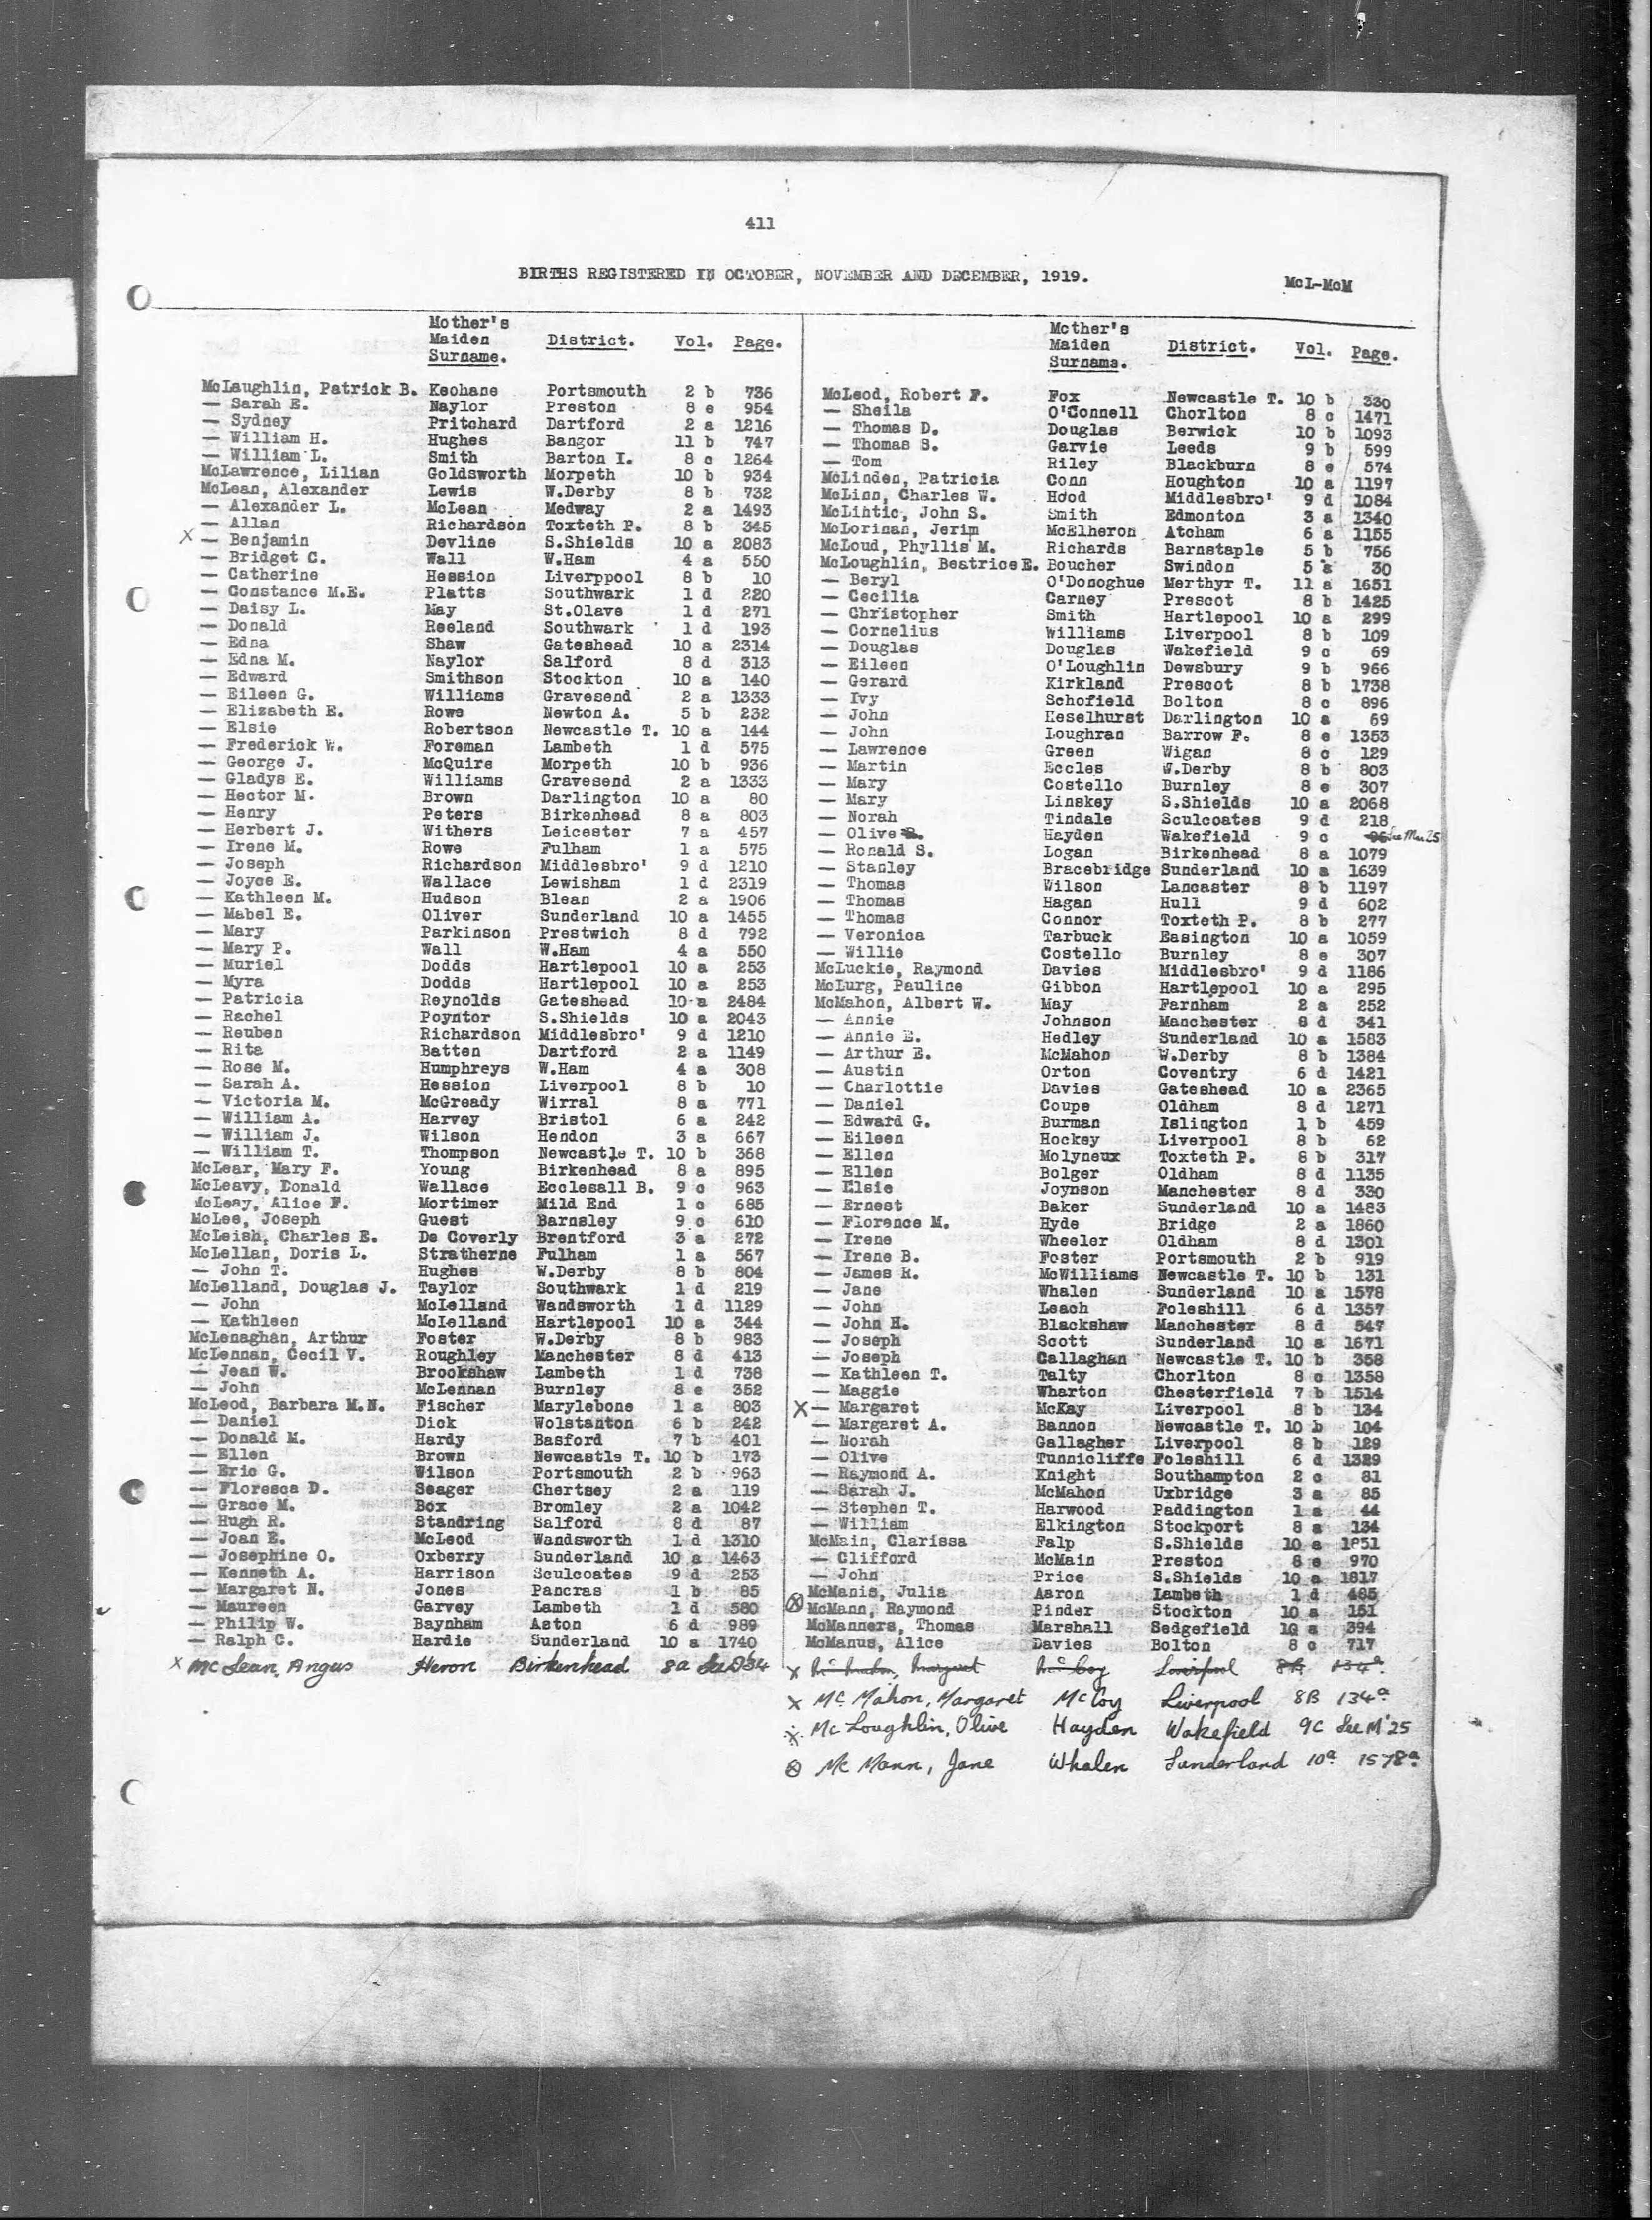 411
BIRTHS REGISTERED IN OCTOBER, NOVEMBER AND DECEMBER, 1919.
McL-McM
Mother's Maiden Surname. District. Vol. Page.
McLaughlin, Patrick B. Keohane Portsmouth 2 b 736
— Sarah E. Naylor Preston 8 e 954
— Sydney Pritchard Dartford 2 a 1216
— William H. Hughes Bangor 11 b 747
— William L. Smith Barton I. 8 c 1264
McLawrence, Lilian Goldsworth Morpeth 10 b 934
McLean, Alexander Lewis W.Derby 8 b 732
— Alexander L. McLean Medway 2 a 1493
— Allan Richardson Toxteth P. 8 b 345
X — Benjamin Devline S.Shields 10 a 2083
— Bridget C. Wall W.Ham 4 a 550
— Catherine Hession Liverppool 8 b 10
— Constance M.E. Platts Southwark 1 d 220
— Daisy L. May St.Olave 1 d 271
— Donald Reeland Southwark 1 d 193
— Edna Shaw Gateshead 10 a 2314
— Edna M. Naylor Salford 8 d 313
— Edward Smithson Stockton 10 a 140
— Eileen G. Williams Gravesend 2 a 1333
— Elizabeth E. Rowe Newton A. 5 b 232
— Elsie Robertson Newcastle T. 10 a 144
— Frederick W. Foreman Lambeth 1 d 575
— George J. McQuire Morpeth 10 b 936
— Gladys E. Williams Gravesend 2 a 1333
— Hector M. Brown Darlington 10 a 80
— Henry Peters Birkenhead 8 a 803
— Herbert J. Withers Leicester 7 a 457
— Irene M. Rowe Fulham 1 a 575
— Joseph Richardson Middlesbro' 9 d 1210
— Joyce E. Wallace Lewisham 1 d 2319
— Kathleen M. Hudson Blean 2 a 1906
— Mabel E. Oliver Sunderland 10 a 1455
— Mary Parkinson Prestwich 8 d 792
— Mary P. Wall W.Ham 4 a 550
— Muriel Dodds Hartlepool 10 a 253
— Myra Dodds Hartlepool 10 a 253
— Patricia Reynolds Gateshead 10 a 2484
— Rachel Poyntor S.Shields 10 a 2043
— Reuben Richardson Middlesbro' 9 d 1210
— Rita Batten Dartford 2 a 1149
— Rose M. Humphreys W.Ham 4 a 308
— Sarah A. Hession Liverpool 8 b 10
— Victoria M. McGready Wirral 8 a 771
— William A. Harvey Bristol 6 a 242
— William J. Wilson Hendon 3 a 667
— William T. Thompson Newcastle T. 10 b 368
McLear, Mary F. Young Birkenhead 8 a 895
McLeavy, Donald Wallace Ecclesall B. 9 c 963
McLeay, Alice F. Mortimer Mild End 1 c 685
McLee, Joseph Guest Barnsley 9 c 610
McLeish, Charles E. De Coverly Brentford 3 a 272
McLellan, Doris L. Stratherne Fulham 1 a 567
— John T. Hughes W.Derby 8 b 804
McLelland, Douglas J. Taylor Southwark 1 d 219
— John McLelland Wandsworth 1 d 1129
— Kathleen McLelland Hartlepool 10 a 344
McLenaghan, Arthur Foster W.Derby 8 b 983
McLennan, Cecil V. Roughley Manchester 8 d 413
— Jean W. Brookshaw Lambeth 1 d 738
— John McLennan Burnley 8 e 352
McLeod, Barbara M.N. Fischer Marylebone 1 a 803
— Daniel Dick Wolstanton 6 b 242
— Donald M. Hardy Basford 7 b 401
— Ellen Brown Newcastle T. 10 b 173
— Eric G. Wilson Portsmouth 2 b 963
— Floresca D. Seager Chertsey 2 a 119
— Grace M. Box Bromley 2 a 1042
— Hugh R. Standring Salford 8 d 87
— Joan E. McLeod Wandsworth 1 d 1310
— Josephine O. Oxberry Sunderland 10 a 1463
— Kenneth A. Harrison Sculcoates 9 d 253
— Margaret N. Jones Pancras 1 b 85
— Maureen Garvey Lambeth 1 d 580
— Philip W. Baynham Aston 6 d 989
— Ralph C. Hardie Sunderland 10 a 1740
X McLean, Angus Heron Birkenhead 8a
Mother's Maiden Surname. District. Vol. Page.
McLeod, Robert F. Fox Newcastle T. 10 b 330
— Sheila O'Connell Chorlton 8 c 1471
— Thomas D. Douglas Berwick 10 b 1093
— Thomas S. Garvie Leeds 9 b 599
— Tom Riley Blackburn 8 e 574
McLinden, Patricia Conn Houghton 10 a 1197
McLinn, Charles W. Hood Middlesbro' 9 d 1084
McLintic, John S. Smith Edmonton 3 a 1340
McLorinan, Jerim McElheron Atcham 6 a 1155
McLoud, Phyllis M. Richards Barnstaple 5 b 756
McLoughlin, Beatrice E. Boucher Swindon 5 a 30
— Beryl O'Donoghue Merthyr T. 11 a 1651
— Cecilia Carney Prescot 8 b 1425
— Christopher Smith Hartlepool 10 a 299
— Cornelius Williams Liverpool 8 b 109
— Douglas Douglas Wakefield 9 c 69
— Eileen O'Loughlin Dewsbury 9 b 966
— Gerard Kirkland Prescot 8 b 1738
— Ivy Schofield Bolton 8 c 896
— John Heselhurst Darlington 10 a 69
— John Loughran Barrow F. 8 e 1353
— Lawrence Green Wigan 8 c 129
— Martin Eccles W.Derby 8 b 803
— Mary Costello Burnley 8 e 307
— Mary Linskey S.Shields 10 a 2068
— Norah Tindale Sculcoates 9 d 218
— Olive Hayden Wakefield 9 c 96 See Mar 25
— Ronald S. Logan Birkenhead 8 a 1079
— Stanley Bracebridge Sunderland 10 a 1639
— Thomas Wilson Lancaster 8 b 1197
— Thomas Hagan Hull 9 d 602
— Thomas Connor Toxteth P. 8 b 277
— Veronica Tarbuck Easington 10 a 1059
— Willie Costello Burnley 8 e 307
McLuckie, Raymond Davies Middlesbro' 9 d 1186
McLurg, Pauline Gibbon Hartlepool 10 a 295
McMahon, Albert W. May Farnham 2 a 252
— Annie Johnson Manchester 8 d 341
— Annie E. Hedley Sunderland 10 a 1583
— Arthur E. McMahon W.Derby 8 b 1384
— Austin Orton Coventry 6 d 1421
— Charlottie Davies Gateshead 10 a 2365
— Daniel Coupe Oldham 8 d 1271
— Edward G. Burman Islington 1 b 459
— Eileen Hockey Liverpool 8 b 62
— Ellen Molyneux Toxteth P. 8 b 317
— Ellen Bolger Oldham 8 d 1135
— Elsie Joynson Manchester 8 d 330
— Ernest Baker Sunderland 10 a 1483
— Florence M. Hyde Bridge 2 a 1860
— Irene Wheeler Oldham 8 d 1301
— Irene B. Foster Portsmouth 2 b 919
— James R. McWilliams Newcastle T. 10 b 131
— Jane Whalen Sunderland 10 a 1578
— John Leach Foleshill 6 d 1357
— John H. Blackshaw Manchester 8 d 547
— Joseph Scott Sunderland 10 a 1671
— Joseph Callaghan Newcastle T. 10 b 358
— Kathleen T. Talty Chorlton 8 c 1358
— Maggie Wharton Chesterfield 7 b 1514
X — Margaret McKay Liverpool 8 b 134
— Margaret A. Bannon Newcastle T. 10 b 104
— Norah Gallagher Liverpool 8 b 129
— Olive Tunnicliffe Foleshill 6 d 1329
— Raymond A. Knight Southampton 2 c 81
— Sarah J. McMahon Uxbridge 3 a 85
— Stephen T. Harwood Paddington 1 a 44
— William Elkington Stockport 8 a 134
McMain, Clarissa Falp S.Shields 10 a 1851
— Clifford McMain Preston 8 e 970
— John Price S.Shields 10 a 1817
McManis, Julia Aaron Lambeth 1 d 485
McMann, Raymond Pinder Stockton 10 a 151
McManners, Thomas Marshall Sedgefield 10 a 394
McManus, Alice Davies Bolton 8 c 717
X Liverpool 8B 134a
X Mc Mahon, Margaret McCoy Liverpool 8B 134a
X Mc Loughlin, Olive Hayden Wakefield 9C See M'25
Mc Mann, Jane Whalen Sunderland 10a 1578a